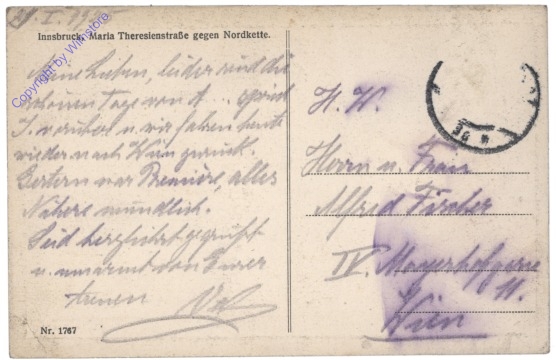 I. 19
Innsbruck, Maria Theresienstraße gegen Nordkette.
Copyright by Wilnstore
Meine Lieben, leider sind die
schönen Tage von
I. vorüber u. wir fahren heute
wieder nach Wien zurück.
Gestern war Première, alles
Nähere mündlich.
Seid herzlichst gegrüßt
u. umarmt von Eurer
treuen
Nr. 1767
H. W.
Herrn u. Frau
Alfred Fischer
IV. Mayerhofgasse
11.
Wien